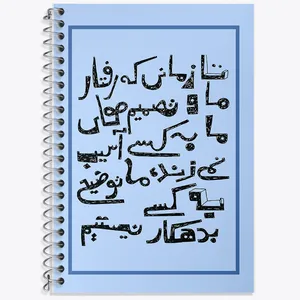 تا زمانی که رفتار
ما و تصمیم‌هامان
به کسی آسیب
نمی‌زند، ما توضیحی
به کسی
بدهکار نیستیم